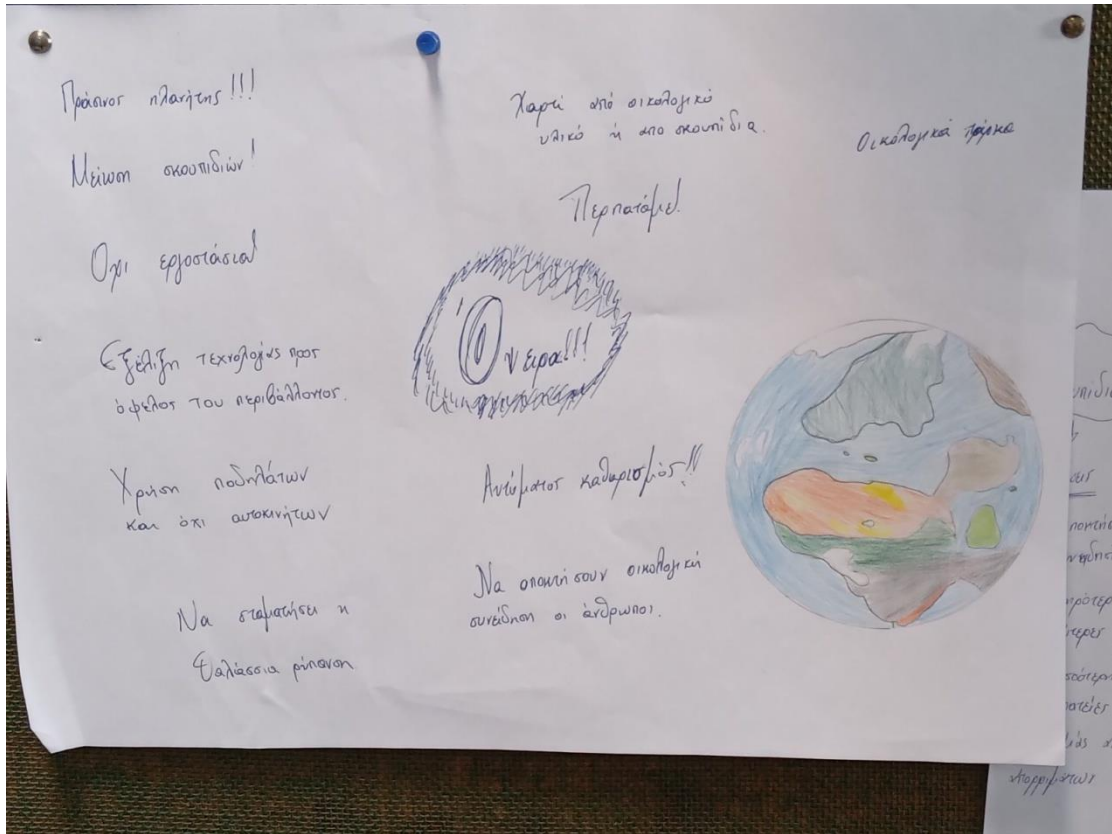 Πράσινος πλανήτης!!!
Μείωση σκουπιδιών!
Όχι εργοστάσια!
Εξέλιξη τεχνολογίας προς
όφελος του περιβάλλοντος.
Χρήση ποδηλάτων
και όχι αυτοκινήτων
Να σταματήσει η
θαλάσσια ρύπανση
Χαρτί από οικολογικό
υλικό ή απο σκουπίδια.
Περπατάμε!
Όνειρα!!!
Αυτόματος καθαρισμός!!
Να αποκτήσουν οικολογική
συνείδηση οι άνθρωποι.
Οικολογικά
απορριμάτων